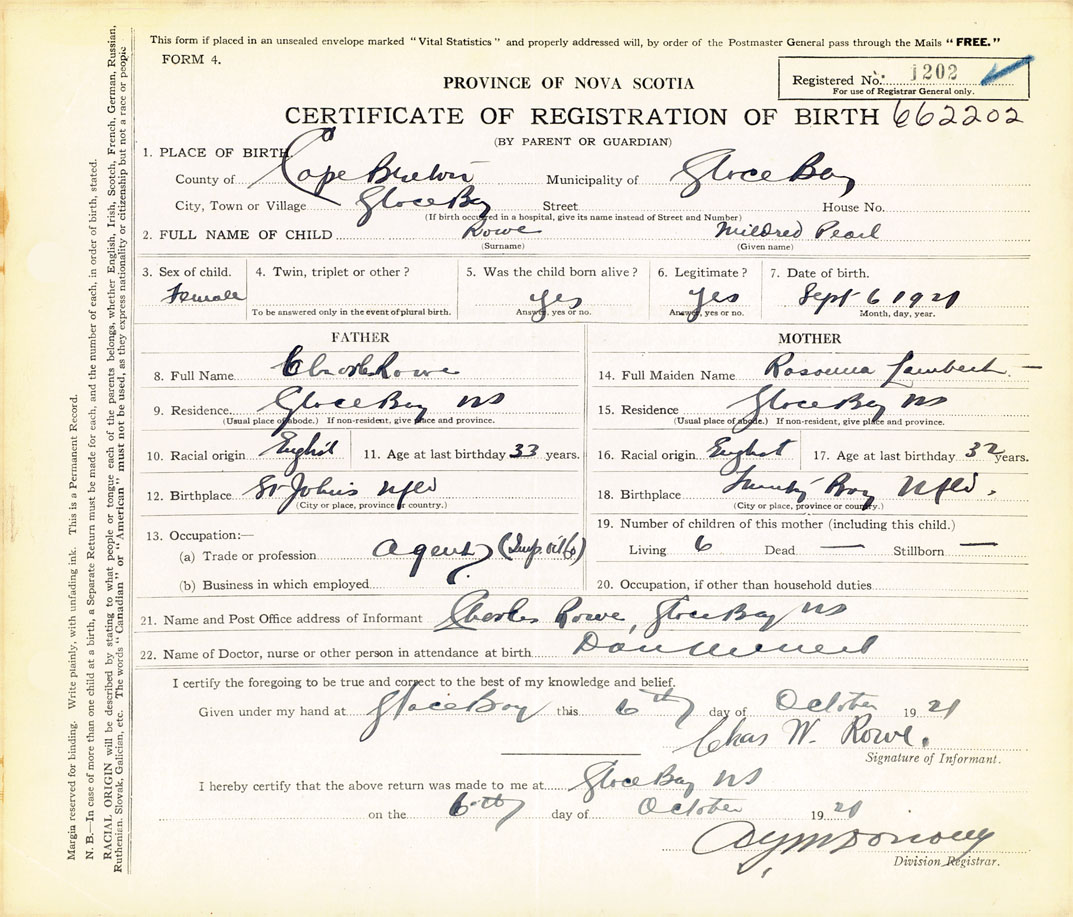 This form if placed in an unsealed envelope marked "Vital Statistics" and properly addressed will, by order of the Postmaster General pass through the Mails "FREE."
FORM 4.
Registered No. 1202
For use of Registrar General only.
PROVINCE OF NOVA SCOTIA
CERTIFICATE OF REGISTRATION OF BIRTH 662202
(BY PARENT OR GUARDIAN)
1. PLACE OF BIRTH
County of Cape Breton Municipality of Glace Bay
City, Town or Village Glace Bay Street House No.
(If birth occured in a hospital, give its name instead of Street and Number)
2. FULL NAME OF CHILD Rowe Mildred Pearl
(Surname) (Given name)
3. Sex of child. 4. Twin, triplet or other? 5. Was the child born alive? 6. Legitimate? 7. Date of birth.
Female yes yes Sept 6 1921
To be answered only in the event of plural birth. Answer, yes or no. Answer, yes or no. Month, day, year.
FATHER MOTHER
8. Full Name Charles Rowe 14. Full Maiden Name Lambert
9. Residence Glace Bay NS 15. Residence Glace Bay NS
(Usual place of abode.) If non-resident, give place and province. (Usual place of abode.) If non-resident, give place and province.
10. Racial origin English 11. Age at last birthday 33 years. 16. Racial origin English 17. Age at last birthday 32 years.
12. Birthplace St Johns Nfld 18. Birthplace Bay Nfld.
(City or place, province or country.) (City or place, province or country.)
13. Occupation:— 19. Number of children of this mother (including this child.)
(a) Trade or profession agent (Imp. oil Co) Living 6 Dead — Stillborn —
(b) Business in which employed 20. Occupation, if other than household duties
21. Name and Post Office address of Informant Charles Rowe, Glace Bay NS
22. Name of Doctor, nurse or other person in attendance at birth
I certify the foregoing to be true and correct to the best of my knowledge and belief.
Given under my hand at Glace Bay this 6th day of October 1921
Chas W. Rowe.
Signature of Informant.
I hereby certify that the above return was made to me at Glace Bay NS
on the 6th day of October 1921
Division Registrar.
Margin reserved for binding. Write plainly, with unfading ink. This is a Permanent Record.
N. B.—In case of more than one child at a birth, a Separate Return must be made for each, and the number of each, in order of birth, stated.
RACIAL ORIGIN will be described by stating to what people or tongue each of the parents belongs, whether English, Irish, Scotch, French, German, Russian,
Ruthenian, Slovak, Galician, etc. The words "Canadian" or "American" must not be used, as they express nationality or citizenship but not a race or people